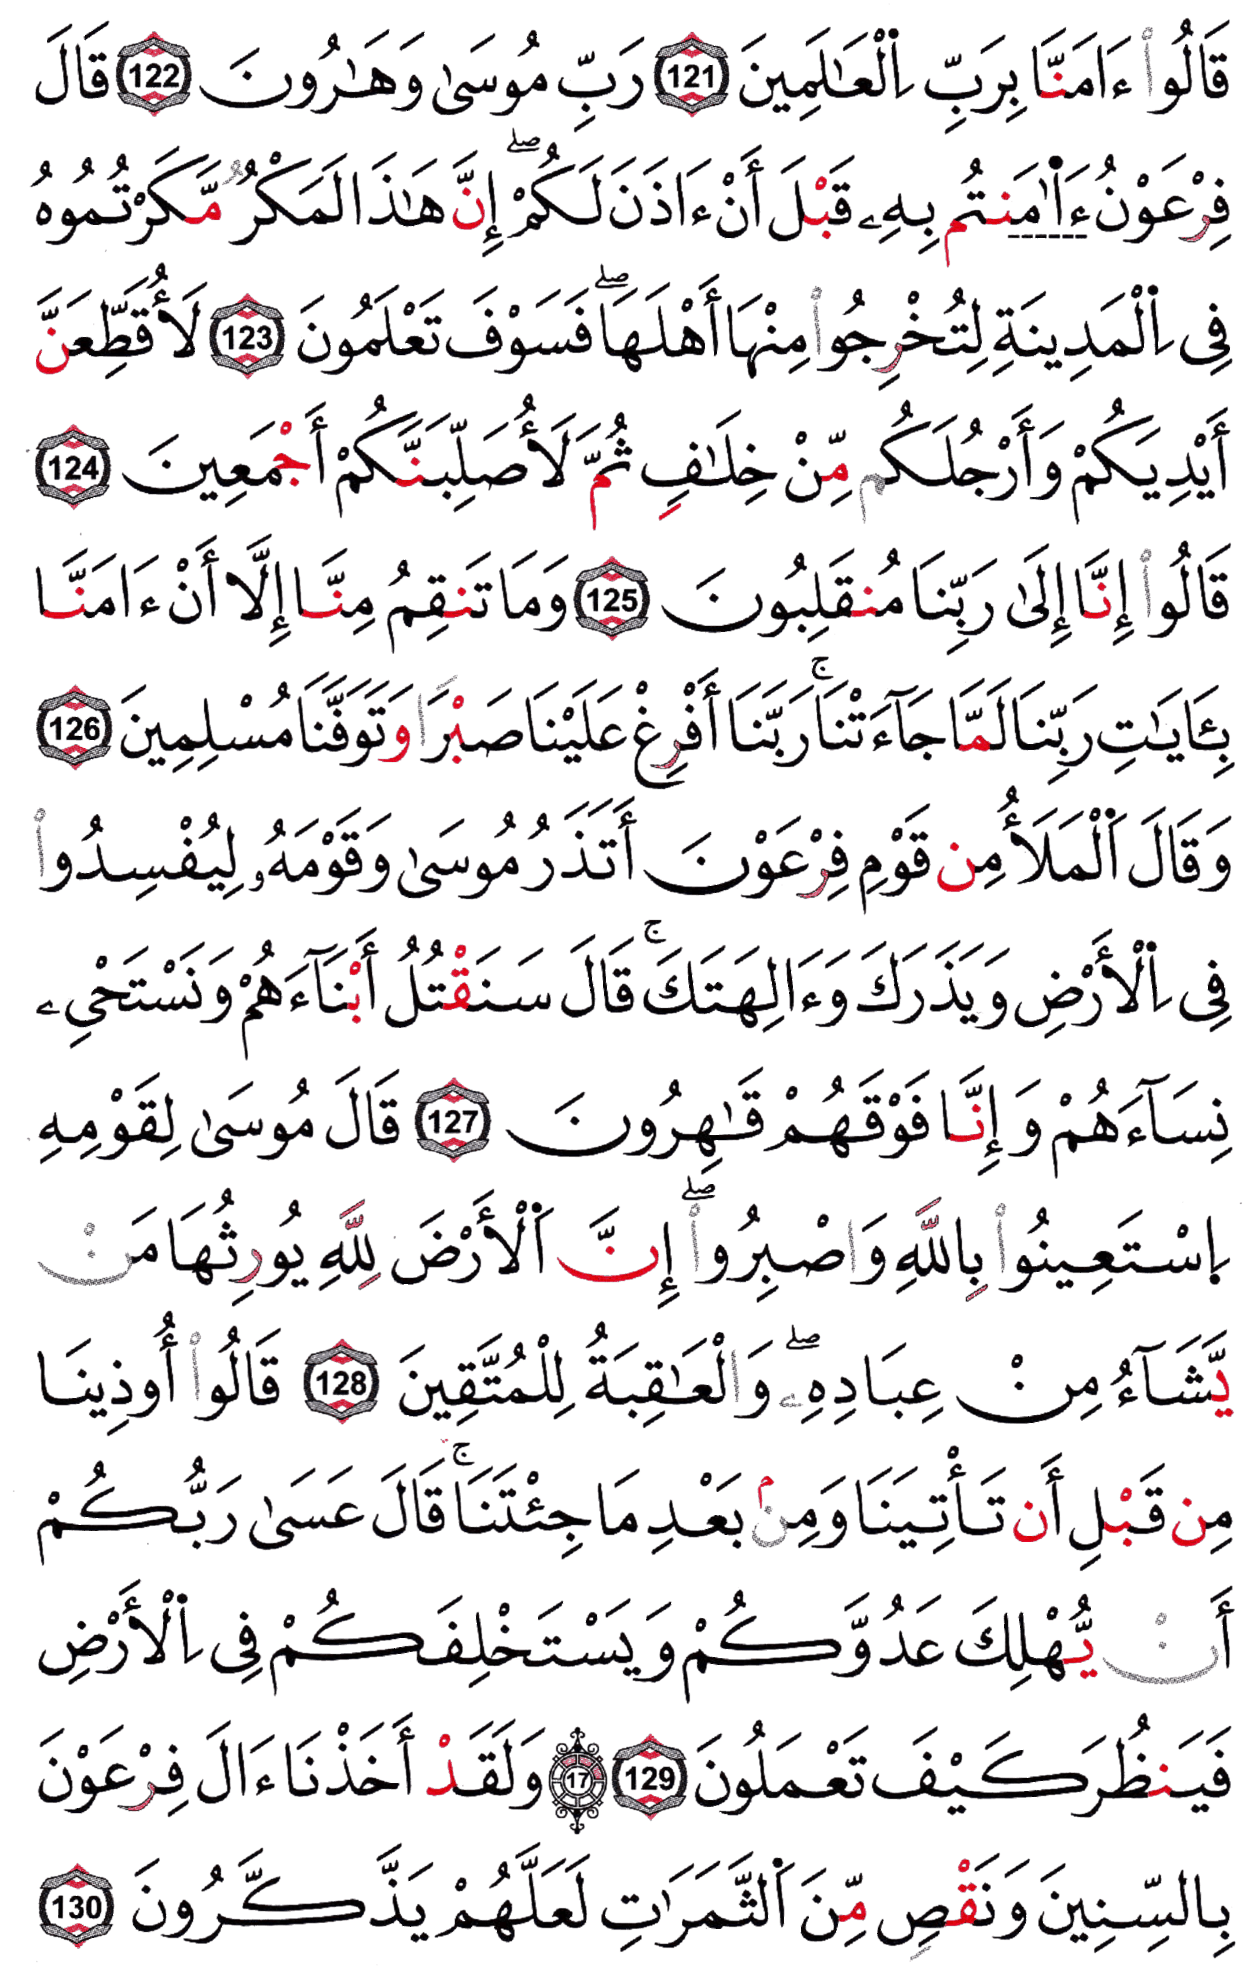 قَالُواْ ءَامَنَّا بِرَبِّ اِ۬لْعَٰلَمِينَ 121 رَبِّ مُوسَىٰ وَهَٰرُونَ 122 قَالَ
فِرْعَوْنُ ءَاْ۬مَنتُم بِهِۦ قَبْلَ أَنْ ءَاذَنَ لَكُمْۖ إِنَّ هَٰذَا لَمَكْرٌ مَّكَرْتُمُوهُ
فِى اِ۬لْمَدِينَةِ لِتُخْرِجُواْ مِنْهَا أَهْلَهَاۖ فَسَوْفَ تَعْلَمُونَ 123 لَأُقَطِّعَنَّ
أَيْدِيَكُمْ وَأَرْجُلَكُم مِّنْ خِلَٰفٖ ثُمَّ لَأُصَلِّبَنَّكُمْ أَجْمَعِينَ 124
قَالُواْ إِنَّا إِلَىٰ رَبِّنَا مُنقَلِبُونَ 125 وَمَا تَنقِمُ مِنَّا إِلَّا أَنْ ءَامَنَّا
بِـَٔايَٰتِ رَبِّنَا لَمَّا جَآءَتْنَاۚ رَبَّنَا أَفْرِغْ عَلَيْنَا صَبْرٗا وَتَوَفَّنَا مُسْلِمِينَ 126
وَقَالَ اَ۬لْمَلَأُ مِن قَوْمِ فِرْعَوْنَ أَتَذَرُ مُوسَىٰ وَقَوْمَهُۥ لِيُفْسِدُواْ
فِى اِ۬لْأَرْضِ وَيَذَرَكَ وَءَالِهَتَكَۚ قَالَ سَنَقْتُلُ أَبْنَآءَهُمْ وَنَسْتَحْىِۦ
نِسَآءَهُمْ وَإِنَّا فَوْقَهُمْ قَٰهِرُونَ 127 قَالَ مُوسَىٰ لِقَوْمِهِ
اِ۪سْتَعِينُواْ بِاللَّهِ وَاصْبِرُواْۖ إِنَّ اَ۬لْأَرْضَ لِلَّهِ يُورِثُهَا مَنْ
يَّشَآءُ مِنْ عِبَادِهِۦۖ وَالْعَٰقِبَةُ لِلْمُتَّقِينَ 128 قَالُواْ أُوذِينَا
مِن قَبْلِ أَن تَأْتِيَنَا وَمِنۢ بَعْدِ مَا جِئْتَنَاۚ قَالَ عَسَىٰ رَبُّكُمْ
أَنْ يُّهْلِكَ عَدُوَّكُمْ وَيَسْتَخْلِفَكُمْ فِى اِ۬لْأَرْضِ
فَيَنظُرَ كَيْفَ تَعْمَلُونَ 129 17 وَلَقَدْ أَخَذْنَا ءَالَ فِرْعَوْنَ
بِالسِّنِينَ وَنَقْصٖ مِّنَ اَ۬لثَّمَرَٰتِ لَعَلَّهُمْ يَذَّكَّرُونَ 130